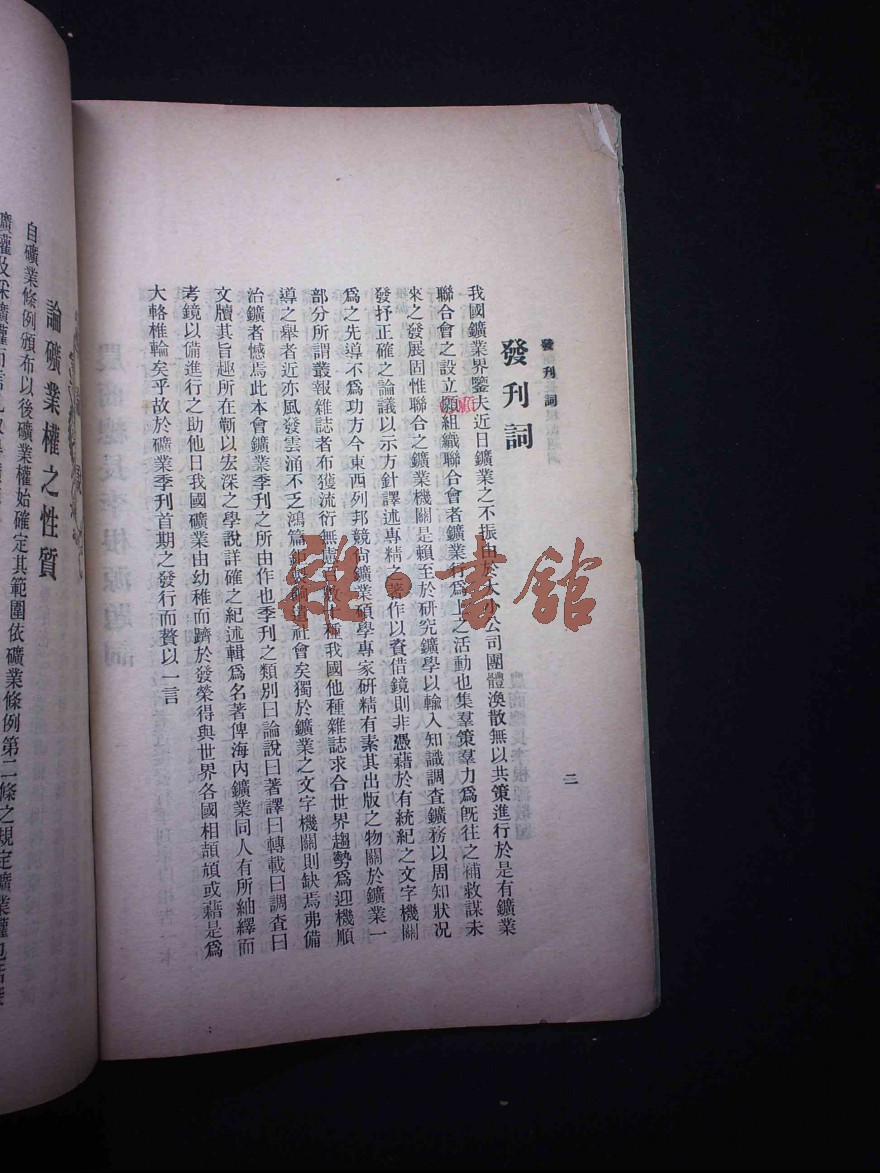 發刊詞
二
發刊詞
我國鑛業界鑒夫近日鑛業之不振由於大小公司團體渙散無以共策進行於是有鑛業
聯合會之設立願組織聯合會者鑛業行爲上之活動也集羣策羣力爲旣往之補救謀未
來之發展固惟聯合之鑛業機關是賴至於研究鑛學以輸入知識調查鑛務以周知狀况
發抒正確之論議以示方針譯述專精之著作以資借鏡則非憑藉於有統紀之文字機關
爲之先導不爲功方今東西列邦競尙鑛業碩學專家研精有素其出版之物關於鑛業一
部分所謂叢報雜誌者布獲流衍無慮百數十種我國他種雜誌求合世界趨勢爲迎機順
導之舉者近亦風發雲涌不乏鴻篇鉅製餉遺社會矣獨於鑛業之文字機關則缺焉弗備
治鑛者憾焉此本會鑛業季刊之所由作也季刊之類別曰論說曰著譯曰轉載曰調查曰
文牘其旨趣所在蘄以宏深之學說詳確之紀述輯爲名著俾海內鑛業同人有所紬繹而
考鏡以備進行之助他日我國鑛業由幼稚而躋於發榮得與世界各國相頡頏或藉是爲
大輅椎輪矣乎故於礦業季刊首期之發行而贅以一言
論礦業權之性質
自礦業條例頒布以後礦業權始確定其範圍依礦業條例第二條之規定礦業權包括
雜·書館